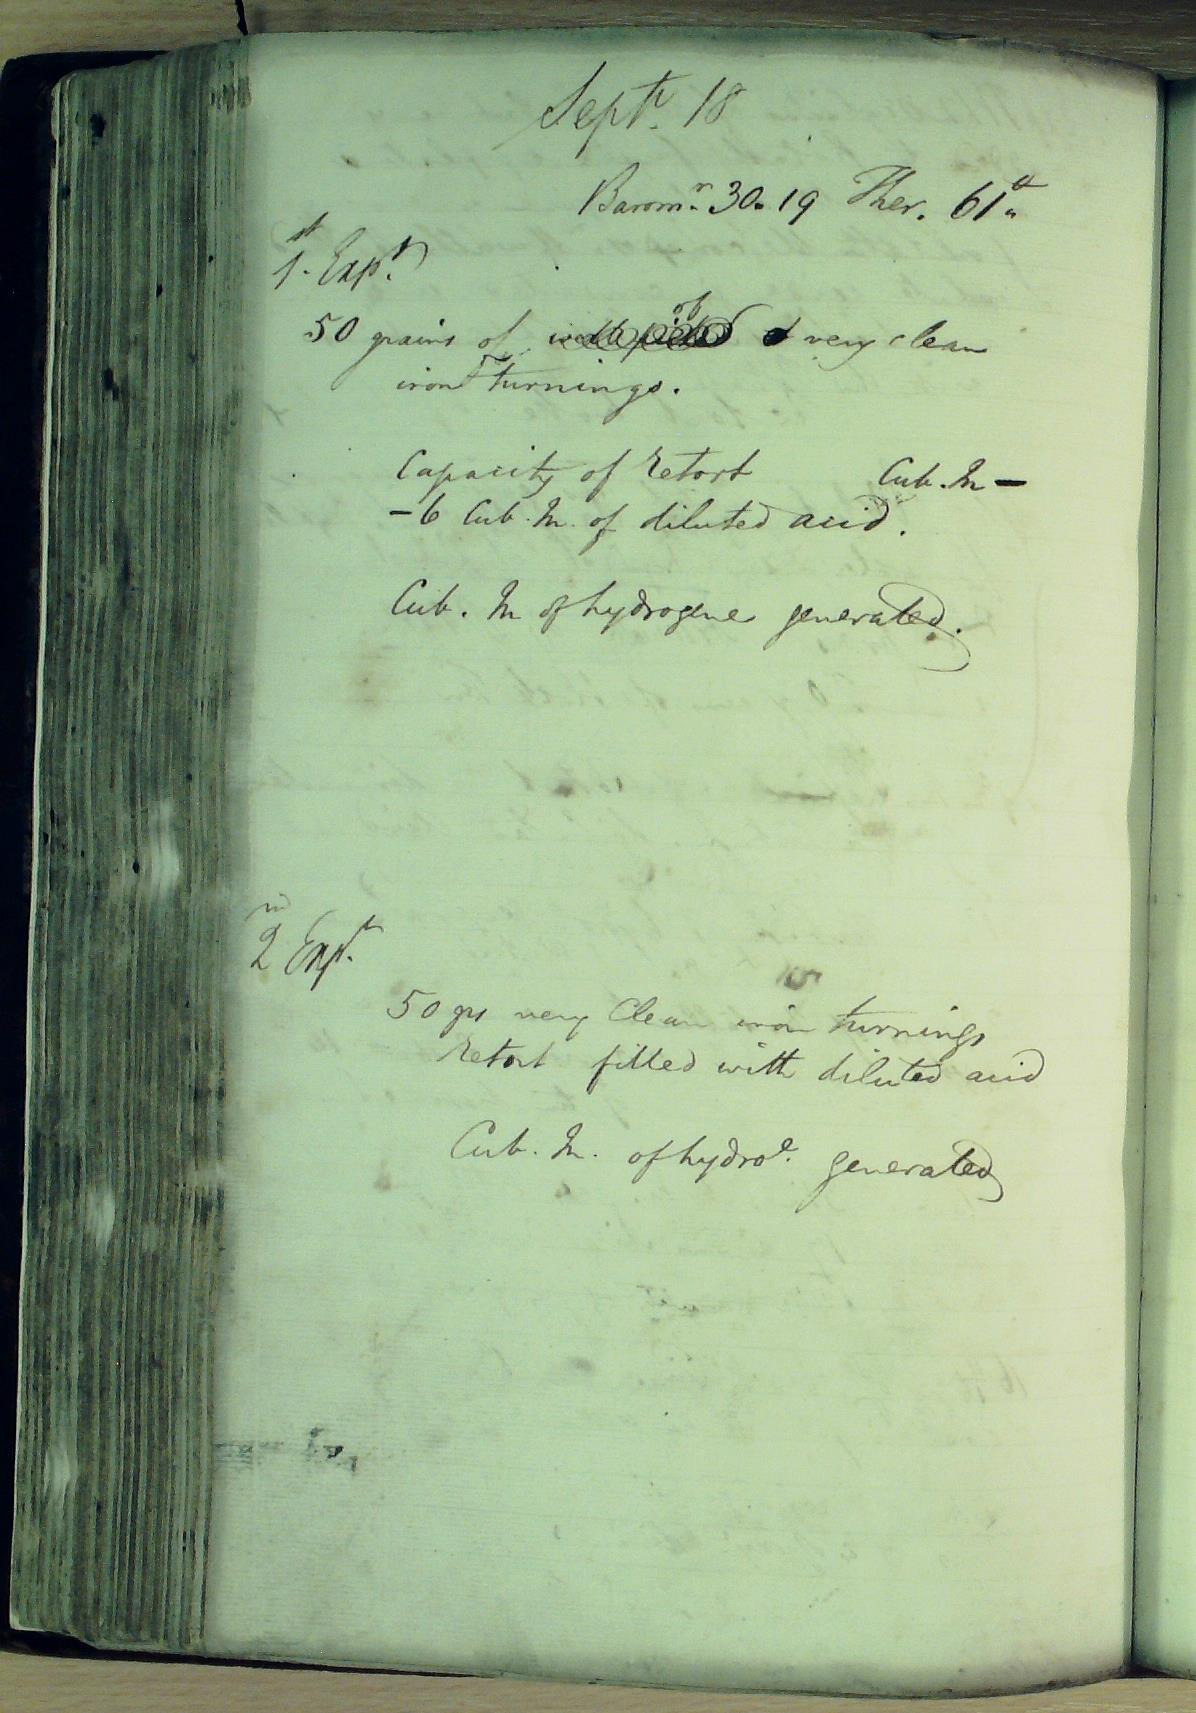 Septr. 18
Baromr. 30.19 Ther. 61°.
1st. Expt.
50 grains of of very clean
iron turnings.
Capacity of retort Cub. In —
-6 Cub. In. of diluted acid.
Cub. In of hydrogene generated.
2nd Expt.
50 grs very Clean iron turnings
retort filled with diluted acid
Cub. In. of hydroe. generated